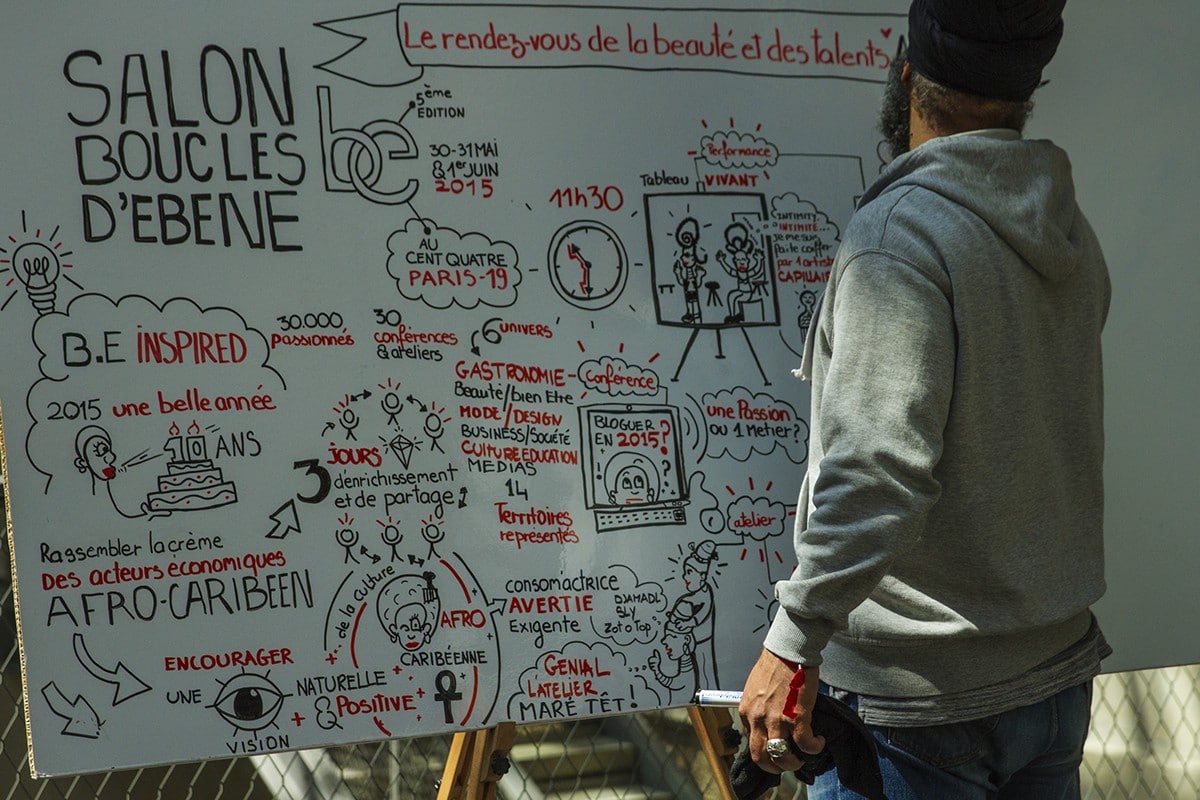 Le rendez-vous de la beauté et des talents
SALON
BOUCLES
D'EBENE
be
5ème
EDITION
30-31 MAI
& 1er JUIN
2015
AU
CENT QUATRE
PARIS-19
11h30
Performance
Tableau VIVANT
INTIMITY
INTIMITÉ...
je me suis
par 1 artiste
CAPILLAI
B.E INSPIRED
2015 une belle année
10 ANS
30.000
passionnés
30
conférences
& ateliers
6 UNIVERS
GASTRONOMIE
Beauté/bien Etre
MODE/DESIGN
BUSINESS/Société
CULTURE EDUCATION
MEDIAS
14
Territoires
représentés
Conférence
BLOGUER
EN 2015?
une Passion
ou 1 Metier?
3 JOURS
dénrichissement
et de partage
Rassembler la crème
Des acteurs économiques
AFRO-CARIBEEN
ENCOURAGER
UNE
VISION
+ NATURELLE
& Positive +
de la culture
AFRO
CARIBÉENNE
consom'actrice
AVERTIE
Exigente
atelier
DJAMADL
SLY
Zoto Top
GENIAL
L'ATELIER
MARE TÊT!